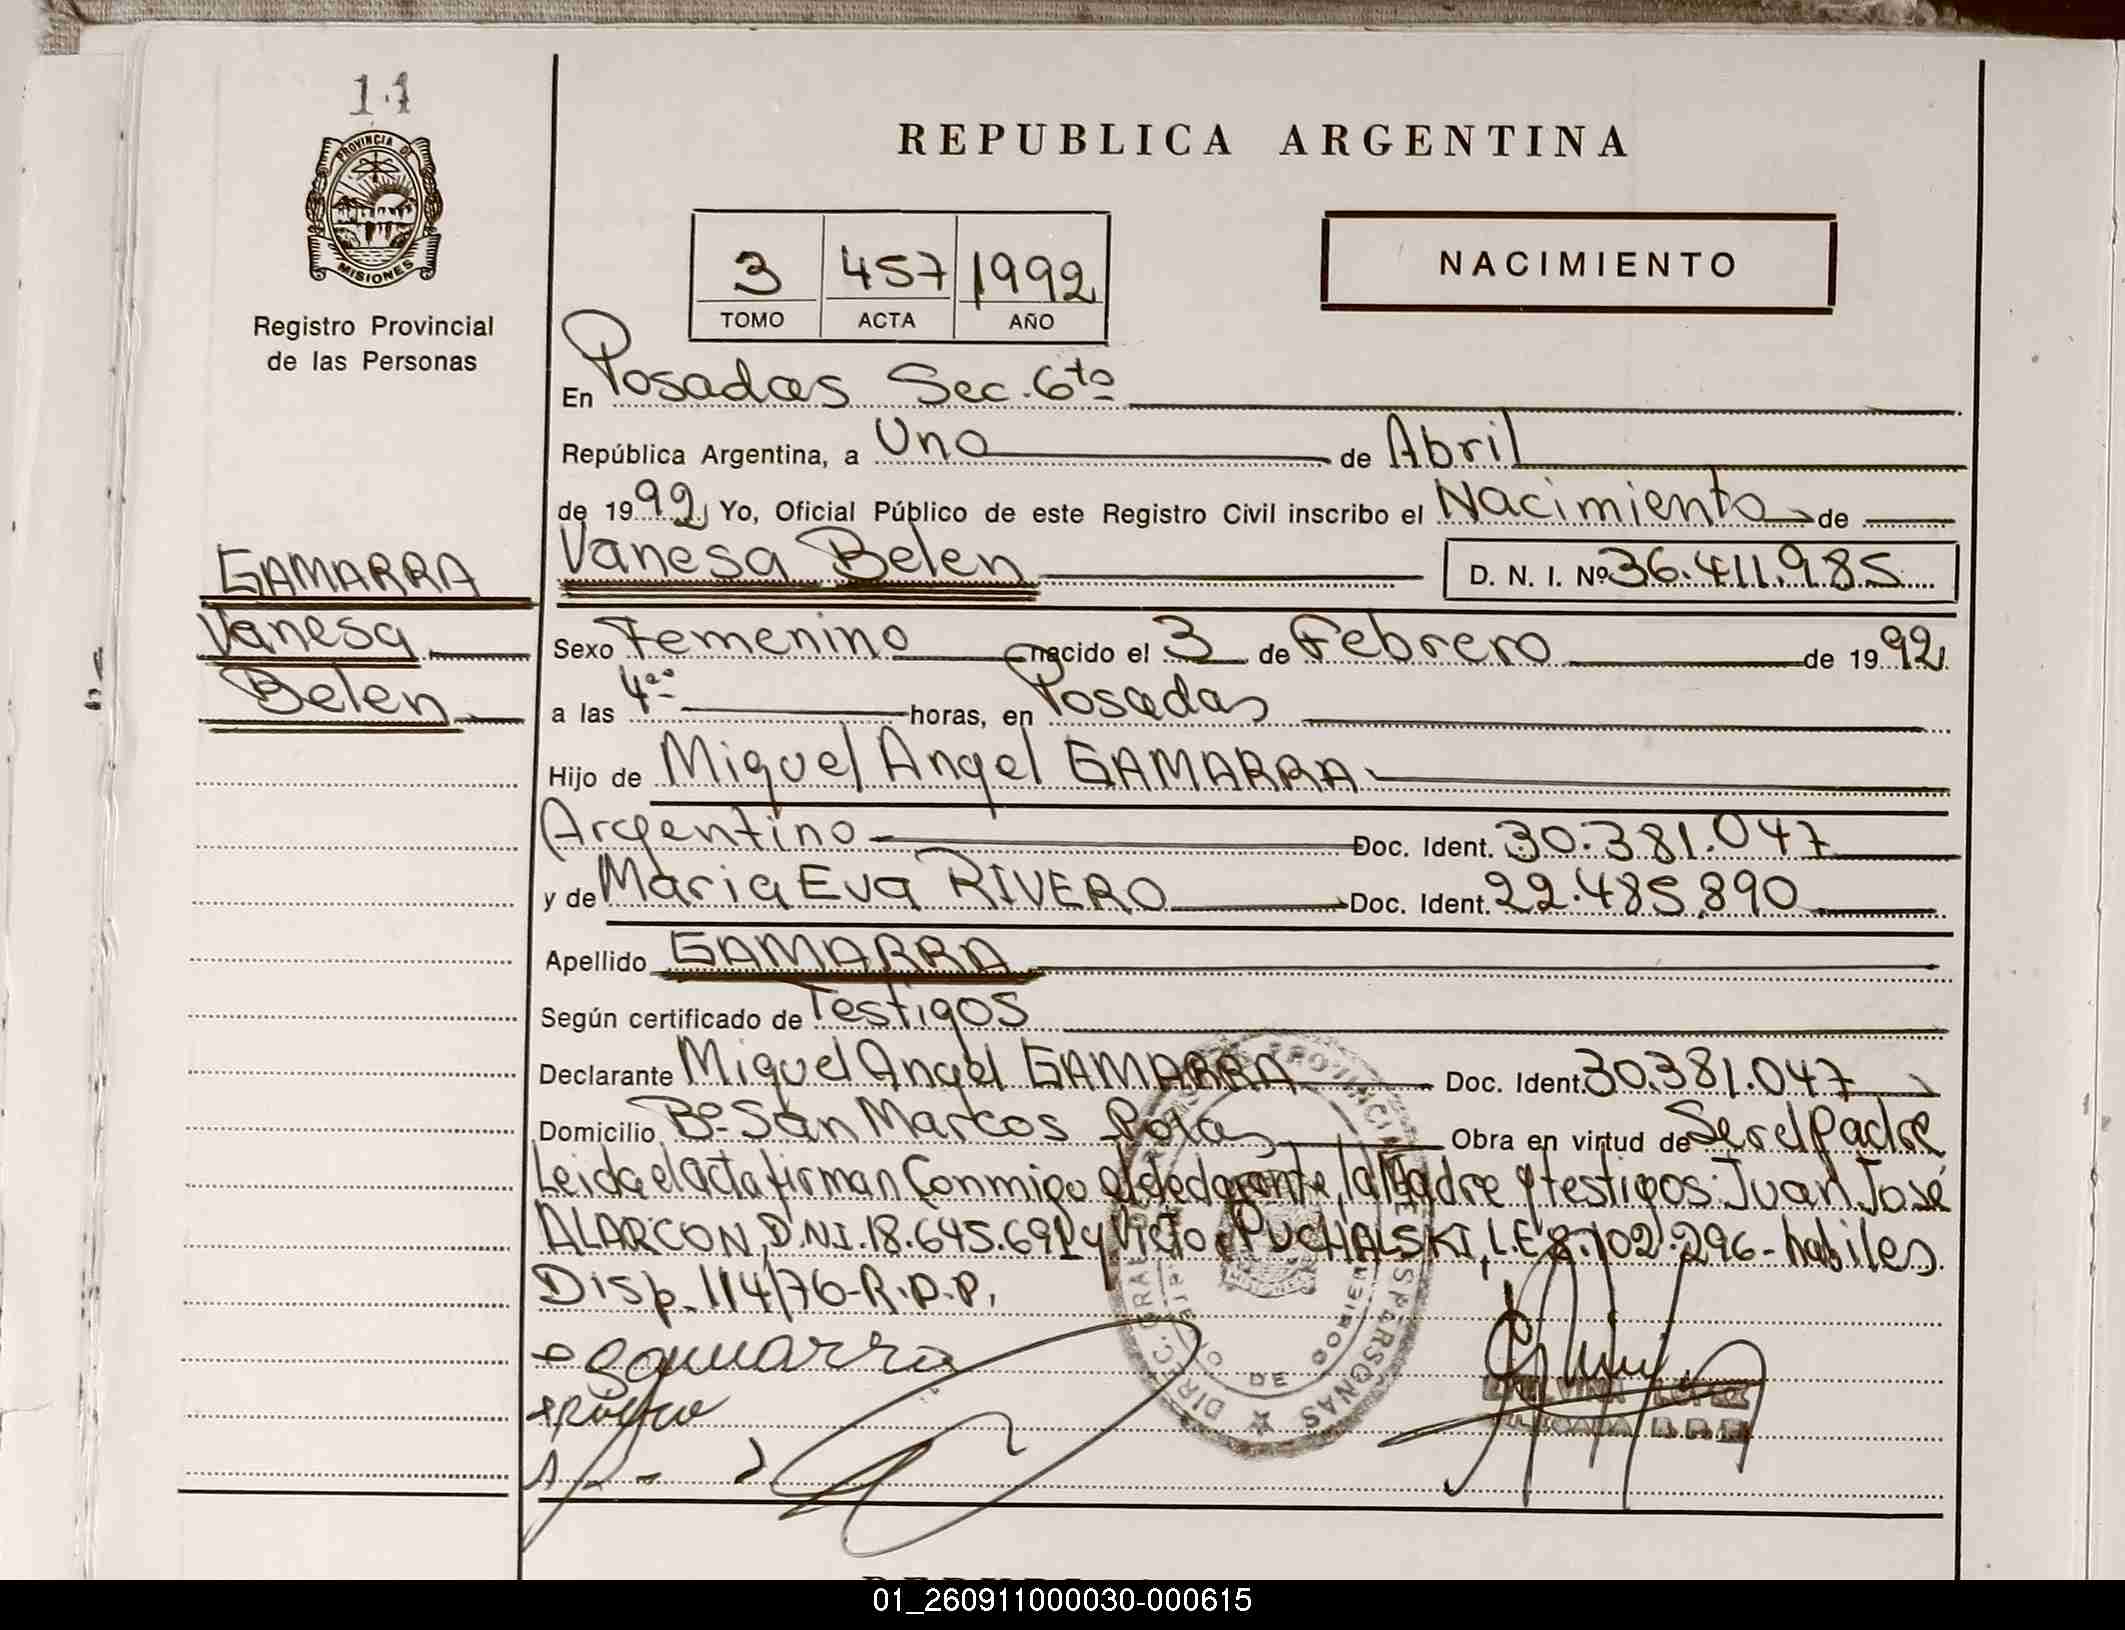 11
PROVINCIA DE
MISIONES
Registro Provincial
de las Personas
REPUBLICA ARGENTINA
NACIMIENTO
3 457 1992
TOMO ACTA AÑO
En Posadas Sec. 6ta
República Argentina, a Uno de Abril
de 1992 Yo, Oficial Público de este Registro Civil inscribo el Nacimiento de
GAMARRA
Vanesa
Belen
Vanesa Belen D. N. I. Nº 36.411.985
Sexo Femenino nacido el 3 de Febrero de 1992
a las 4ºº horas, en Posadas
Hijo de Miguel Angel GAMARRA
Argentino Doc. Ident. 30.381.047
y de Maria Eva RIVERO Doc. Ident. 22.485.890
Apellido GAMARRA
Según certificado de Testigos
Declarante Miguel Angel GAMARRA Doc. Ident. 30.381.047
Domicilio Bº San Marcos Pdas Obra en virtud de Ser el Padre
Leida el acta firman Conmigo el declarante, la Madre y testigos: Juan José
ALARCON, D.N.I. 18.645.691 y PUCHALSKI, L.E 8.102.296- habiles
Disp. 114/76-R.P.P.
DIREC. GRAL PROVINCIAL PERSONAS
DE
LOPEZ
01_260911000030-000615